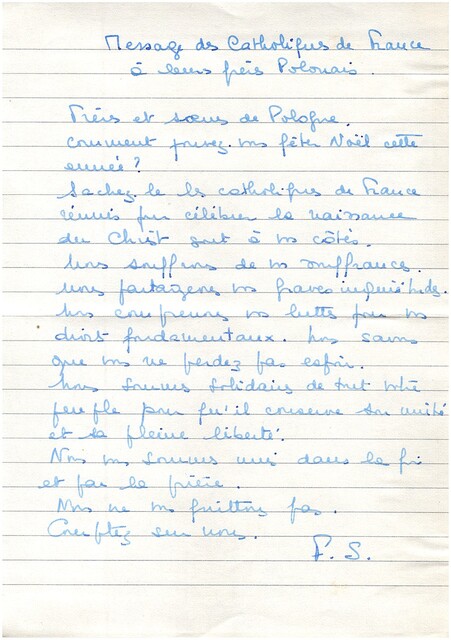 Message des Catholiques de France
à leurs frères Polonais.
Frères et sœurs de Pologne.
comment pouvez vous fêter Noël cette
année ?
Sachez le les catholiques de France
réunis pour célébrer la naissance
du Christ sont à vos côtés.
Nous souffrons de vos souffrances.
nous partageons vos graves inquiétudes.
Nous comprenons vos luttes pour vos
droits fondamentaux. Nous savons
que vous ne perdez pas espoir.
Nous sommes solidaires de tout votre
peuple pour qu'il conserve son unité
et sa pleine liberté.
Nous vous sommes unis dans la foi
et par la prière.
Nous ne vous quittons pas.
Comptez sur nous.
F. S.